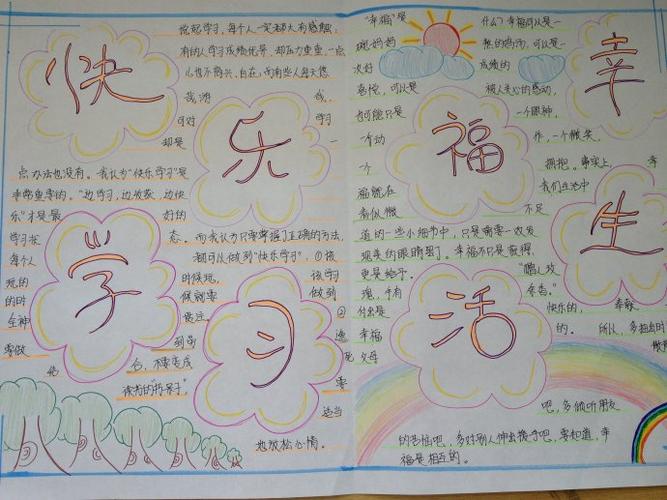 快乐
学习
说起学习，每个人一定都大有感触：
有的人学习成绩优异，却压力重重，一点
儿也不高兴，自在；而有些人每天悠
可对 学习
却是 一
点办法也没有。我认为“快乐学习”是
非常重要的。“边学习，边放歌，边快
乐”才是最 好的
学习状 态。而我认为只要掌握了正确的方法，
每个人 都可以做到“快乐学习”。①该
玩的 时候玩， 该学习
的时 候就要 做到
全神 贯注。 ②
要做 到劳
逸 合，不要变成
读书的 “书呆子”。 要
适当
地放松心情。
幸福
生活
“幸福”是 什么？幸福可以是一
成绩的
喜悦，可以是 被人关心的感动，
也可能只是 一个眼神，
一个动 作，一个微笑，
一个 拥抱。事实上， 幸
福就在 我们生活中
看似微 不足
道的一些小细节中，只是需要一双发
现美的眼睛罢了。幸福不只是获得，
更是给予。 “赠人玫
瑰，手有 余香。”
付出是 快乐的， 奉献
幸福 的。 所以，多抽出时
父母
吧，多倾听朋友
的苦恼吧，多对别人伸出援手吧，要知道，幸
福是相互的。